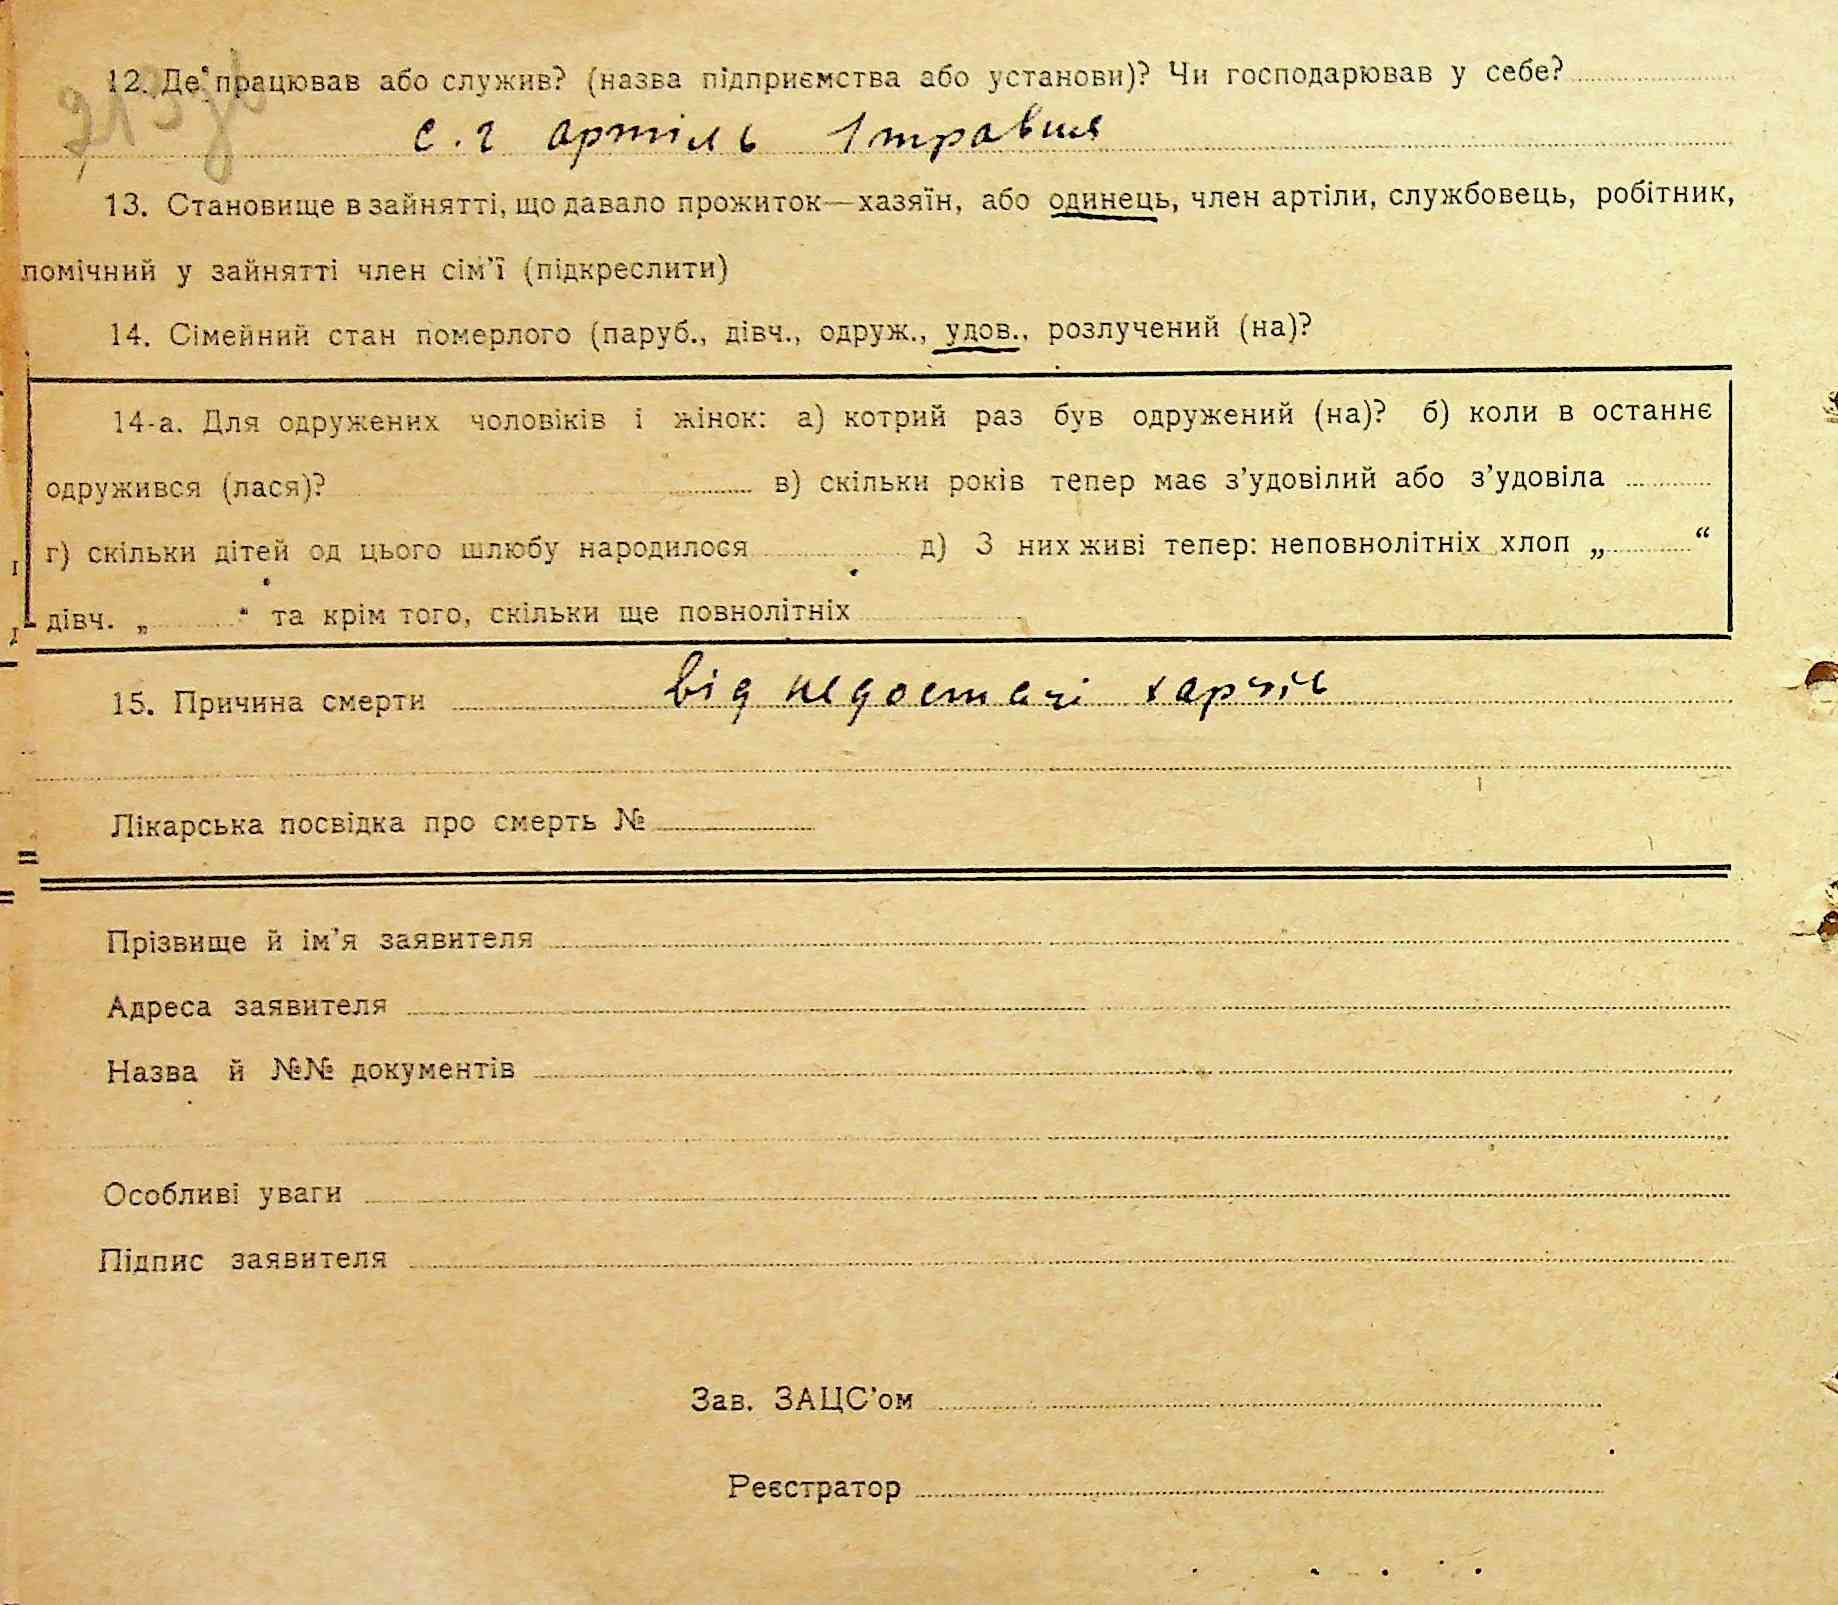 12. Де працював або служив? (назва підприємства або установи)? Чи господарював у себе?
с. г артіль 1 травня
13. Становище в зайнятті, що давало прожиток—хазяїн, або одинець, член артіли, службовець, робітник,
помічний у зайнятті член сім'ї (підкреслити)
14. Сімейний стан померлого (паруб., дівч., одруж., удов., розлучений (на)?
14-а. Для одружених чоловіків і жінок: а) котрий раз був одружений (на)? б) коли в останнє
одружився (лася)? в) скільки років тепер має з'удовілий або з'удовіла
г) скільки дітей од цього шлюбу народилося д) З них живі тепер: неповнолітніх хлоп „ “
дівч. „ “ та крім того, скільки ще повнолітніх
15. Причина смерти від недостачі харчів
Лікарська посвідка про смерть №
Прізвище й ім'я заявителя
Адреса заявителя
Назва й №№ документів
Особливі уваги
Підпис заявителя
Зав. ЗАЦС'ом
Реєстратор